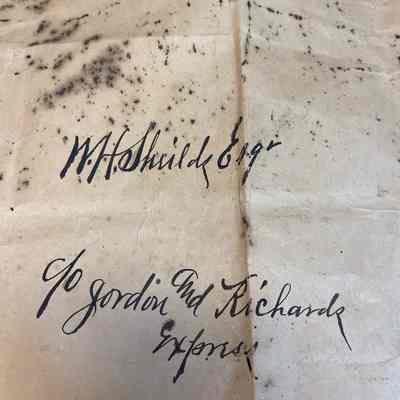 W. H. Sheilds Esqr
c/o Gordon and Richards
Express